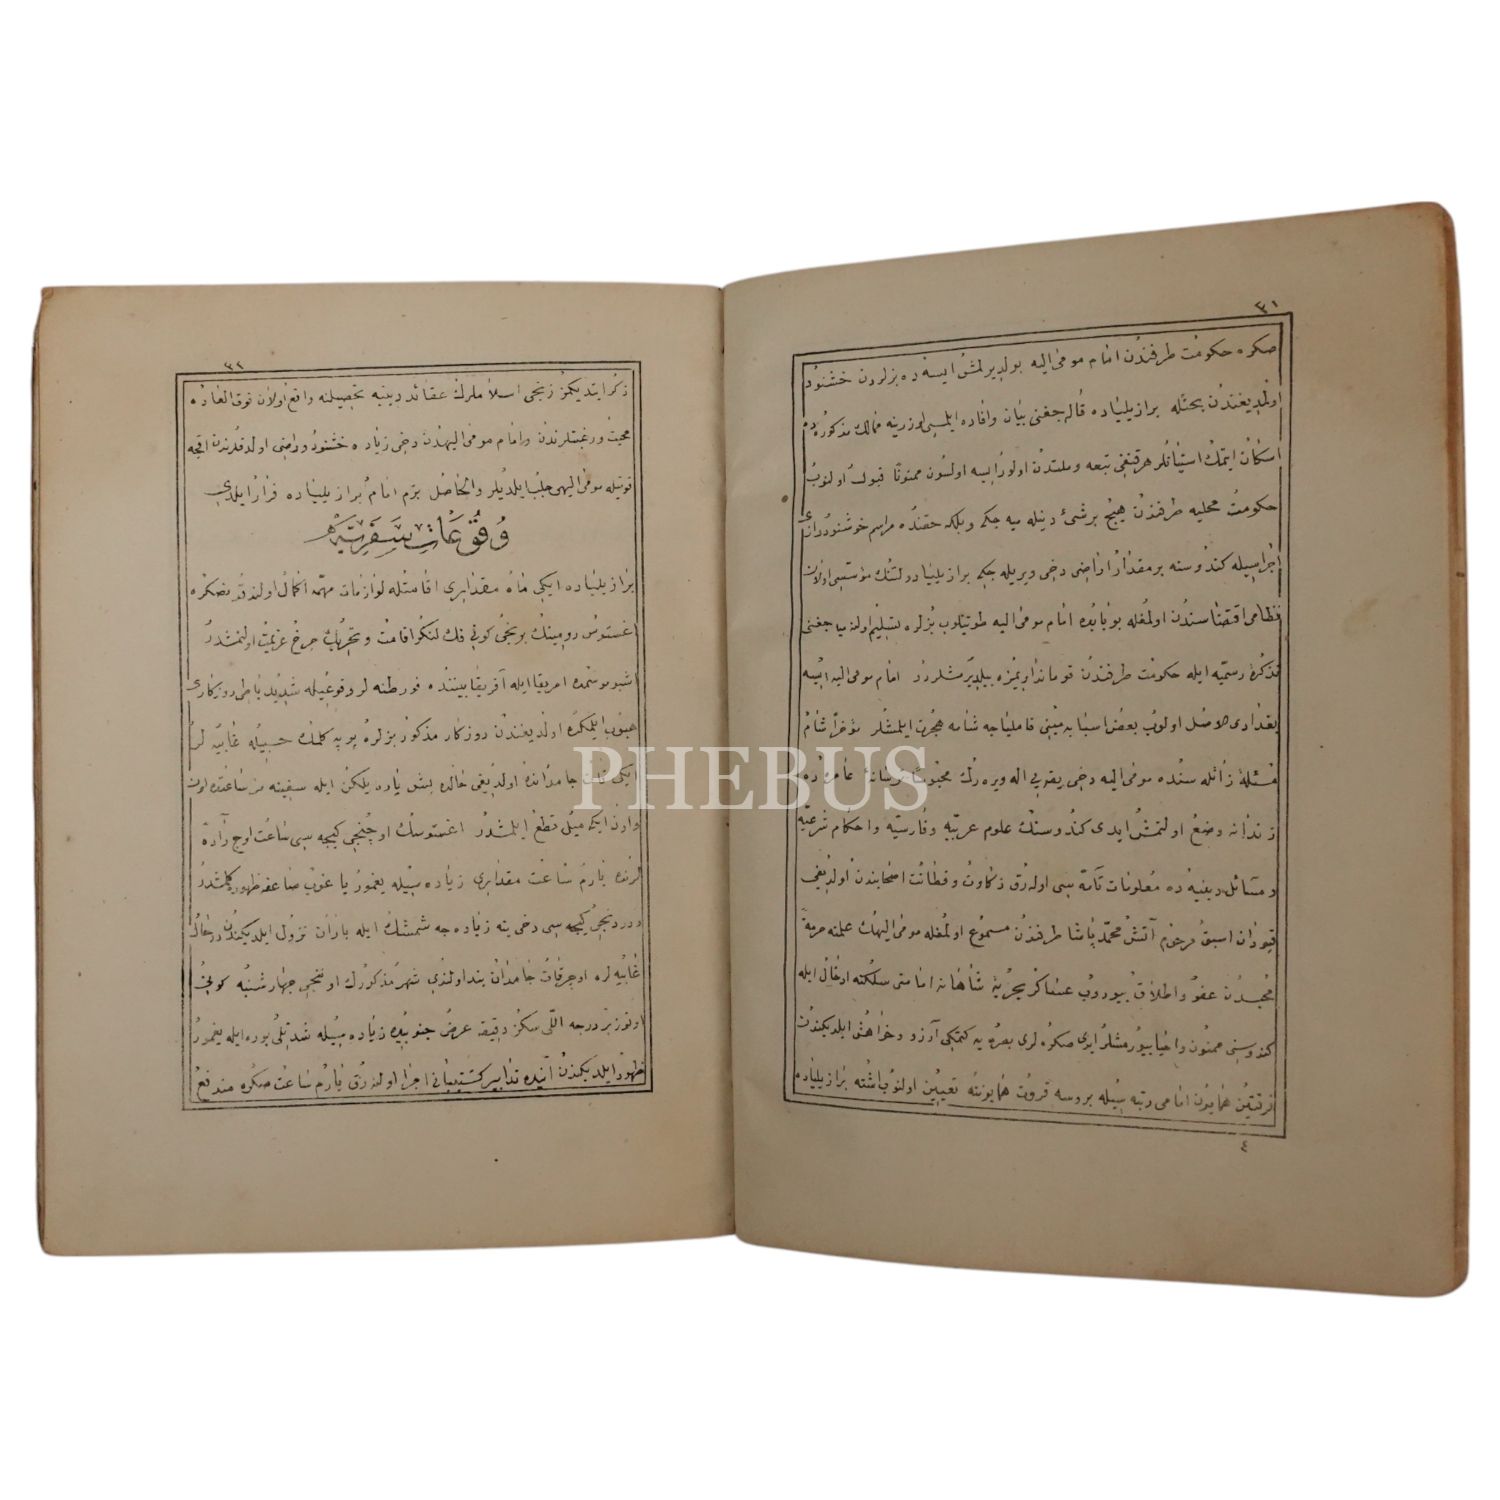 ٣١
صكره حكومت طرفندن امام مومى اليه بولديرلمش ايسه ده بزلردن خشنود
اولمديغندن بحثله برازيلياده قاله جغنى بيان وافاده ايلمسى اوزرينه ممالك مذكوره ده
اسكان ايتمك استيانلر هرقنغى تبعه وملتدن اولورايسه اولسون ممنونا قبول اولنوب
حكومت محليه طرفندن هيچ برشئ دينله ميه جكى وبلكه حقنده مراسم خوشنودى
اجراسيله كندوسنه برمقدار اراضى دخى ويريله جكى برازيليا دولتنك مؤسسى اولان
نظامى اقتضاسندن اولمغله بوبابده امام مومى اليه طوتيلوب بزلره تسليم اولنه ميه جغنى
تذكرۀ رسميه ايله حكومت طرفندن قوماندانمزه بيلديرمشلردر امام مومى اليه
بغدادى الاصل اولوب بعض اسبابه مبنى فامليا جه شامه هجرت ايلمشلر مؤخراً شام
مسئلۀ زائله سنده مومى اليه دخى يقه يى اله ويره رك محبوساً ترسانۀ عامره ده
زندانه وضع اولنمش ايدى كندوسنك علوم عربيه وفارسيه واحكام شرعيه
ومسائل دينيه ده معلومات تامه سى اوله رق ذكاوت وفطانت اصحابندن اولديغى
قپودان اسبق مرحوم آتش محمد پاشا طرفندن مسموع اولمغله مومى اليهك علمنه حرمةً
محبسدن عفو واطلاق بيوروب عساكر بحريۀ شاهانه امامتى سلكنه ادخال ايله
كندوسنى ممنون واحيا بيورمشلر ايدى صكره لرى بصره يه كتمكى آرزو وخواهش ايلديكندن
فرقتين همايون امامى رتبه سيله بروسه قورت همايوننه تعيين اولنوب اشته برازيلياده
٤
٣٢
ذكر ايتديكمز زنجى اسلاملرك عقائد دينيه تحصيلنه واقع اولان فوق العاده
محبت ورغبتلرندن وامام مومى اليهدن دخى زياده خشنود وراضى اولدقلرندن اقچه
قوتيله مومى اليهى جلب ايلديلر والحاصل بزم امام برازيلياده قرار ايلدى
وقوعات سفريه
برازيلياده ايكى ماه مقدارى اقامتله لوازمات مهمه اكمال اولندقدنصكره
اغستوس روميتنك برنجى كونى فك لنكر اقامت وتحريك چرخ عزيمت اولنمشدر
اشبو موسمده امريقا ايله آفريقا بيننده فورطنه لر وقوعيله شديد باطى روزكارى
هبوب ايلمكده اولديغندن روزكار مذكور بزلره پوپه كلمك حسبيله غابيه لر
ايكى قات جامدانده اولديغى حالده بش ياره يلكن ايله سفينه مز ساعتده اون
واون ايكى ميل قطع ايلمشدر اغستوسك اوچنجى كيجه سى ساعت اوچ راده
لرنده يارم ساعت مقدارى زياده سيله يغمور ياغوب صاعقه ظهوره كلمشدر
ودردنجى كيجه سى دخى ينه زياده جه شمشك ايله باران نزول ايلديكندن درحال
غابيه لره اوچر قات جامدان بند اولندى شهر مذكورك اونجى چهارشنبه كونى
اوتوز بر درجه اللى سكز دقيقه عرض جنوبيده زياده سيله شدتلى بوره ايله يغمور
ظهور ايلديكندن آنيده تدابير كشتيبانى اجرا اولنه رق يارم ساعت صكره مندفع
PHEBUS